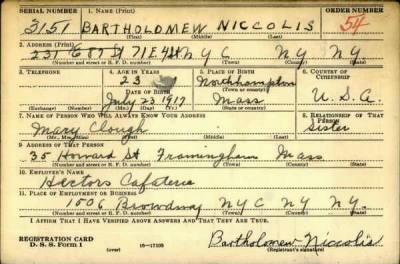 SERIAL NUMBER 1. NAME (Print) ORDER NUMBER
3151 BARTHOLOMEW NICCOLIS 54
(First) (Middle) (Last)
2. ADDRESS (Print)
231 E 87 St 71 E 4 St N Y C N Y N Y
(Number and street or R. F. D. number) (Town) (County) (State)
3. TELEPHONE 4. AGE IN YEARS 5. PLACE OF BIRTH 6. COUNTRY OF CITIZENSHIP
23 Northampton
DATE OF BIRTH (Town or county)
July 23 1917 Mass U. S. A.
(Exchange) (Number) (Mo.) (Day) (Yr.) (State or country)
7. NAME OF PERSON WHO WILL ALWAYS KNOW YOUR ADDRESS 8. RELATIONSHIP OF THAT PERSON
Mary Clough Sister
(Mr., Mrs., Miss) (First) (Middle) (Last)
9. ADDRESS OF THAT PERSON
35 Howard St Framingham Mass
(Number and street or R. F. D. number) (Town) (County) (State)
10. EMPLOYER'S NAME
Cafateria
11. PLACE OF EMPLOYMENT OR BUSINESS
1506 Broadway N Y C N Y N Y.
(Number and street or R. F. D. number) (Town) (County) (State)
I AFFIRM THAT I HAVE VERIFIED ABOVE ANSWERS AND THAT THEY ARE TRUE.
REGISTRATION CARD
D. S. S. Form 1 (over) 16—17105 Bartholomew Niccolis
(Registrant's signature)